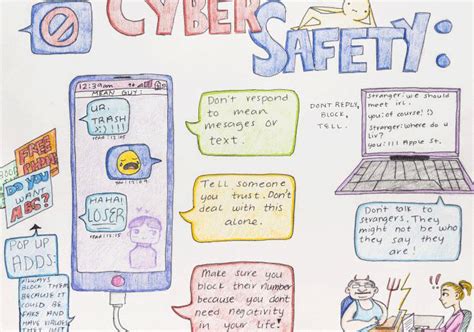 CYBER
SAFETY:
12:39am
MEAN GUY:
UR
TRASH
:):)!!!
read 12:25
HAHA!
LOSER
read 12:25
Don't respond
to mean
mesages or
text.
DON'T REPLY,
BLOCK,
TELL.
Stranger: we should
meet irl.
you: of course! :)
Stranger: where do u
liv?
you: 111 Apple St.
FREE
DO YOU
WANT
ABC?
POP UP
ADDS:
ALWAYS
BLOCK THEM
BECAUSE IT
COULD BE
FAKE AND
HAVE VIRUSES
Tell someone
you trust. Don't
deal with this
alone.
Don't talk to
strangers. They
might not be who
they say they
are!
Make sure you
block their number
because you dont
need negativity
in your life!